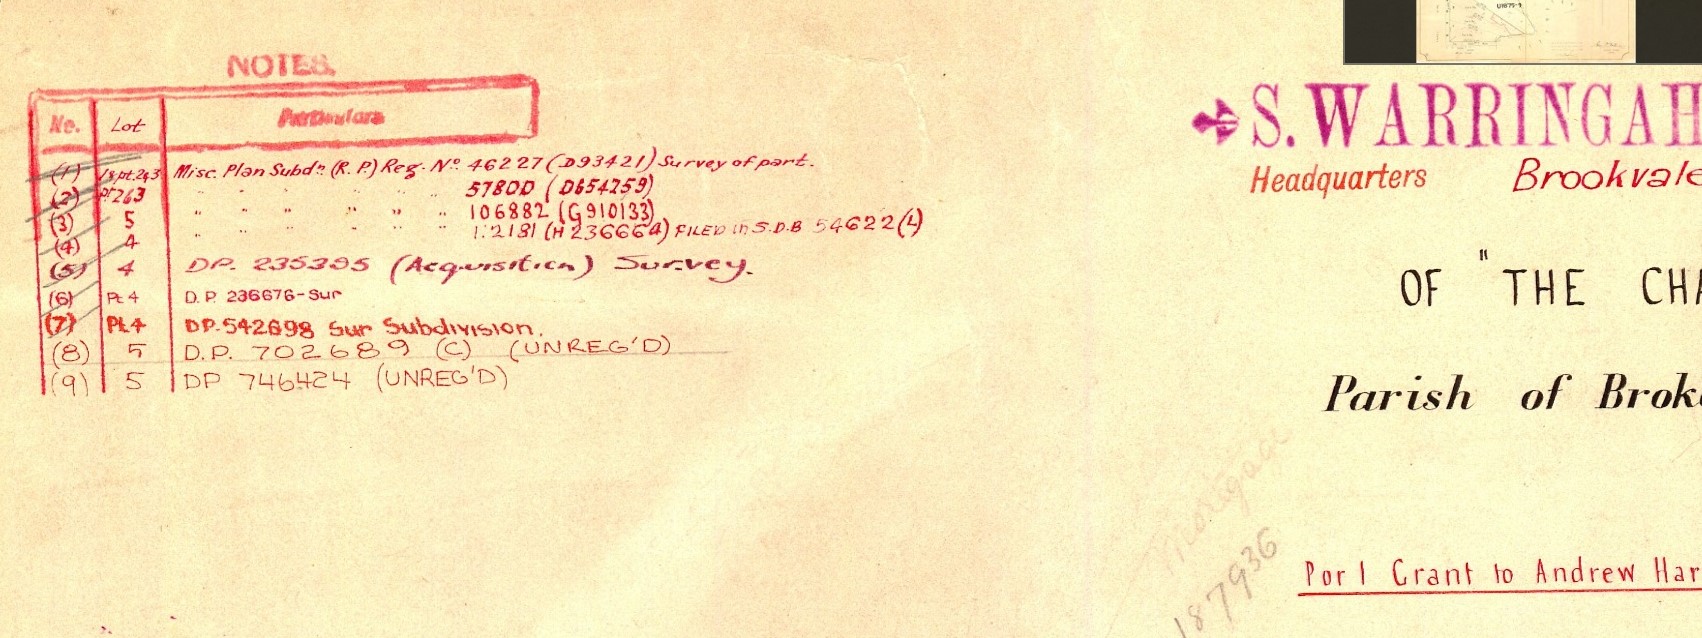 NOTES.
No. Lot Particulars
(1) 1 & pt. 2&3 Misc. Plan Subdn. (R.P.) Reg. No. 46227 (D93421) Survey of part.
(2) Pt 2&3 " " " " " 57800 (D654259)
(3) 5 " " " " " 106882 (G910133)
(4) 4 " " " " " 112181 (H236664) FILED in S.D.B 54622(L)
(5) 4 DP. 235395 (Acquisition) Survey.
(6) Pt 4 D.P. 236676-Sur
(7) Pt. 4 DP. 542698 Sur Subdivision.
(8) 5 D.P. 702689 (C) (UNREG'D)
(9) 5 DP 746424 (UNREG'D)
S. WARRINGAH
Headquarters Brookvale
OF "THE CHA
Parish of Brok
Mortgage
187936
Por 1 Grant to Andrew Har